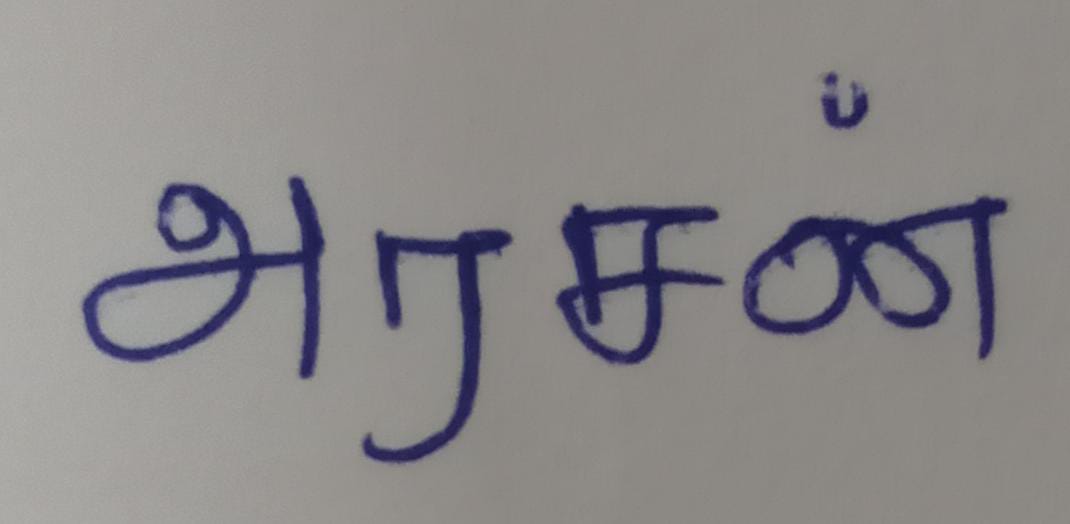 அரசன்